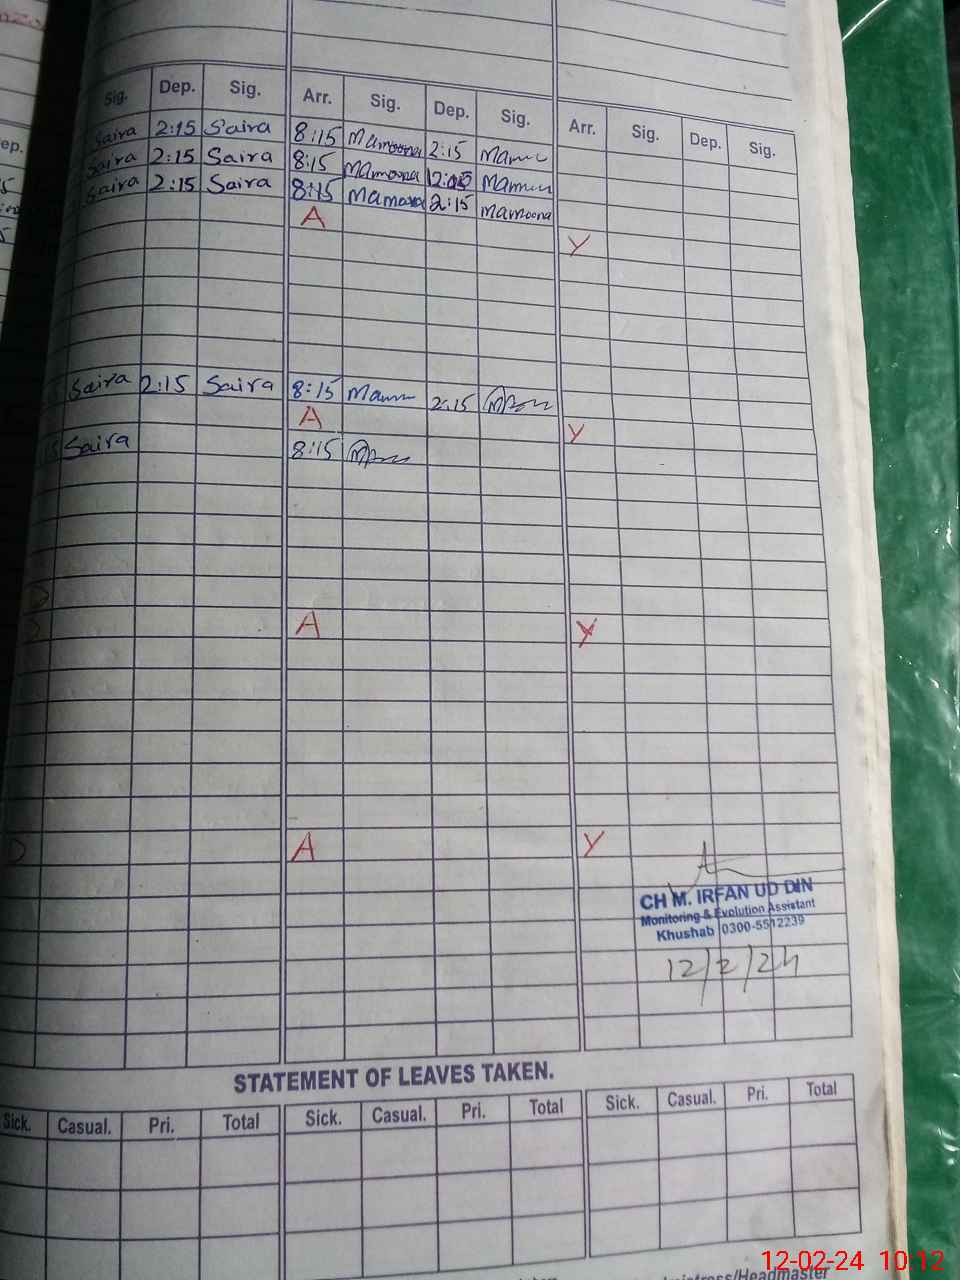 Sig. Dep. Sig. Arr. Sig. Dep. Sig. Arr. Sig. Dep. Sig.
ep.
Saira 2:15 Saira 8:15 Mamoona 2:15
Saira 2:15 Saira 8:15 Mamoona
Saira 2:15 Saira 8:15 Mamoona 2:15 Mamoona
A
Y
Saira 2:15 Saira 8:15 2:15
A
Y
Saira 8:15
A Y
A Y
CH M. IRFAN UD DIN
Monitoring & Evolution Assistant
Khushab 0300-5512239
12/2/24
STATEMENT OF LEAVES TAKEN.
Sick. Casual. Pri. Total Sick. Casual. Pri. Total Sick. Casual. Pri. Total
/Headmaster
12-02-24 10:12